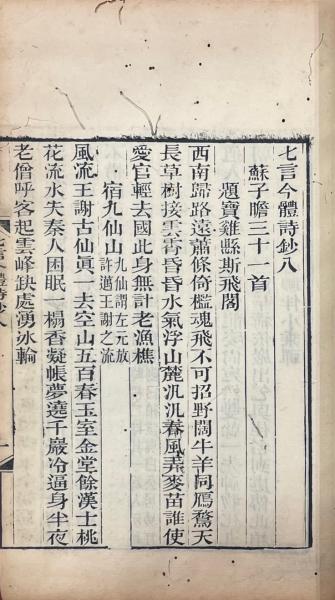 七言今體詩鈔八
蘇子瞻三十一首
題寶雞縣斯飛閣
西南歸路遠蕭條倚檻魂飛不可招野闊牛羊同鴈鶩天
長草樹接雲霄昏昏水氣浮山麓汎汎春風弄麥苗誰使
愛官輕去國此身無計老漁樵
宿九仙山九仙謂左元放
許邁王謝之流
風流王謝古仙眞一去空山五百春玉室金堂餘漢士桃
花流水失秦人困眠一榻香凝帳夢遶千巖冷逼身半夜
老僧呼客起雲峰缺處湧冰輪
七言今體詩鈔八